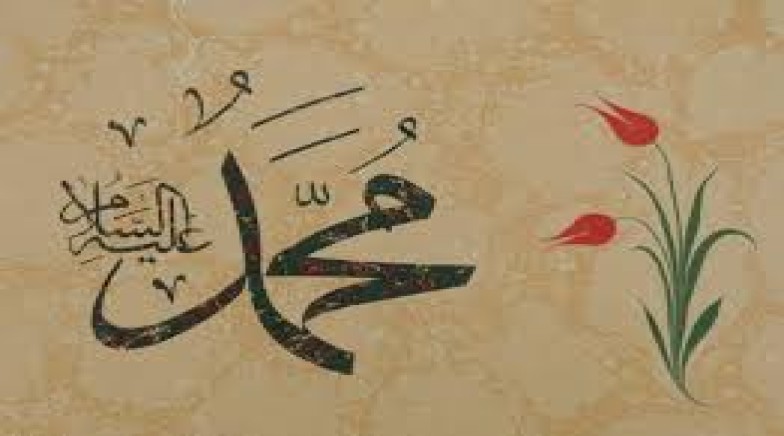 مُحَمَّدٌ
عليه السلام